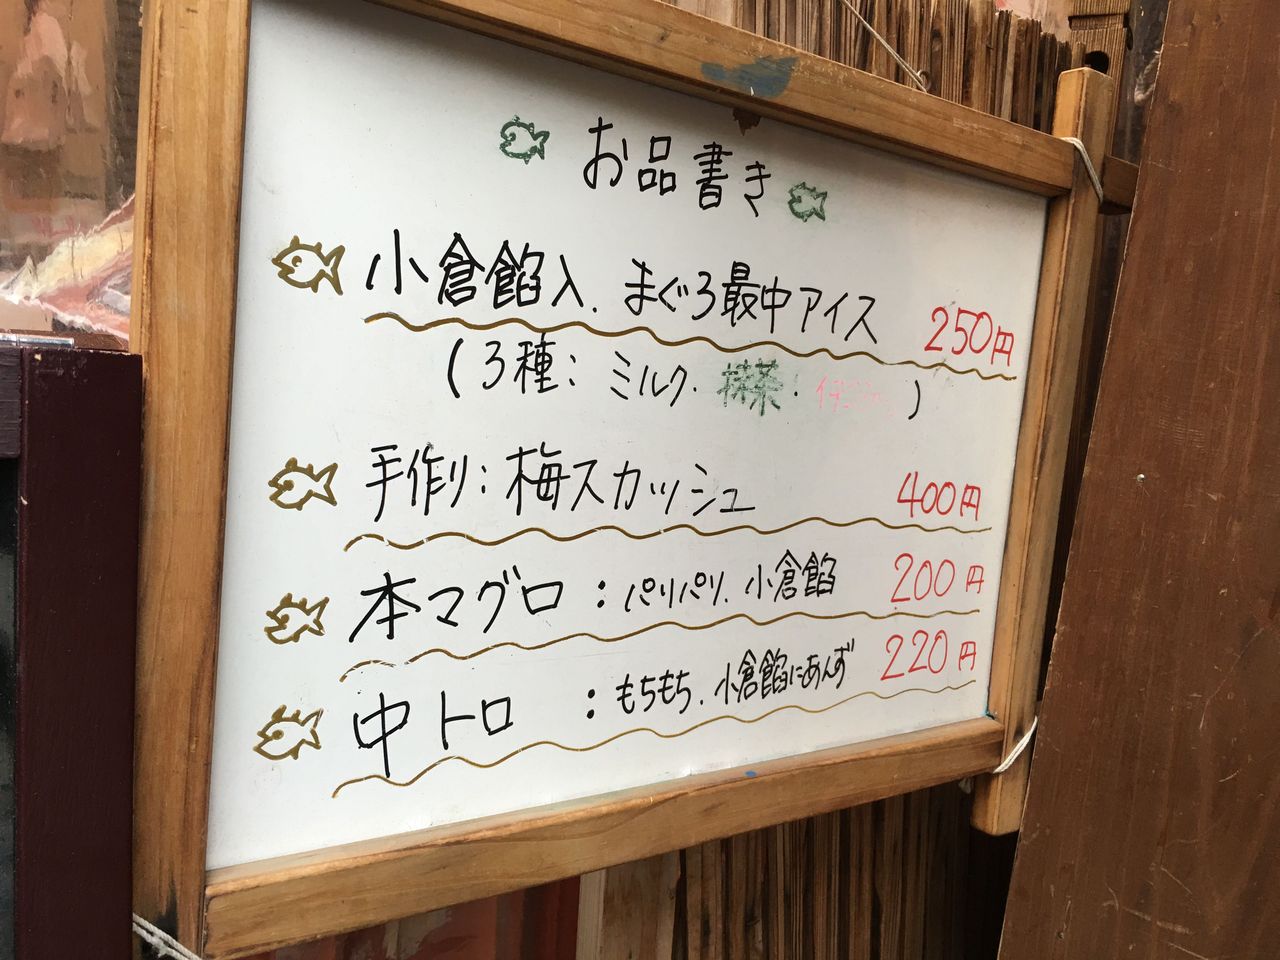 お品書き
小倉餡入、まぐろ最中アイス 250円
(3種: ミルク・抹茶・ )
手作り:梅スカッシュ 400円
本マグロ:パリパリ、小倉餡 200円
中トロ :もちもち、小倉餡にあんず 220円